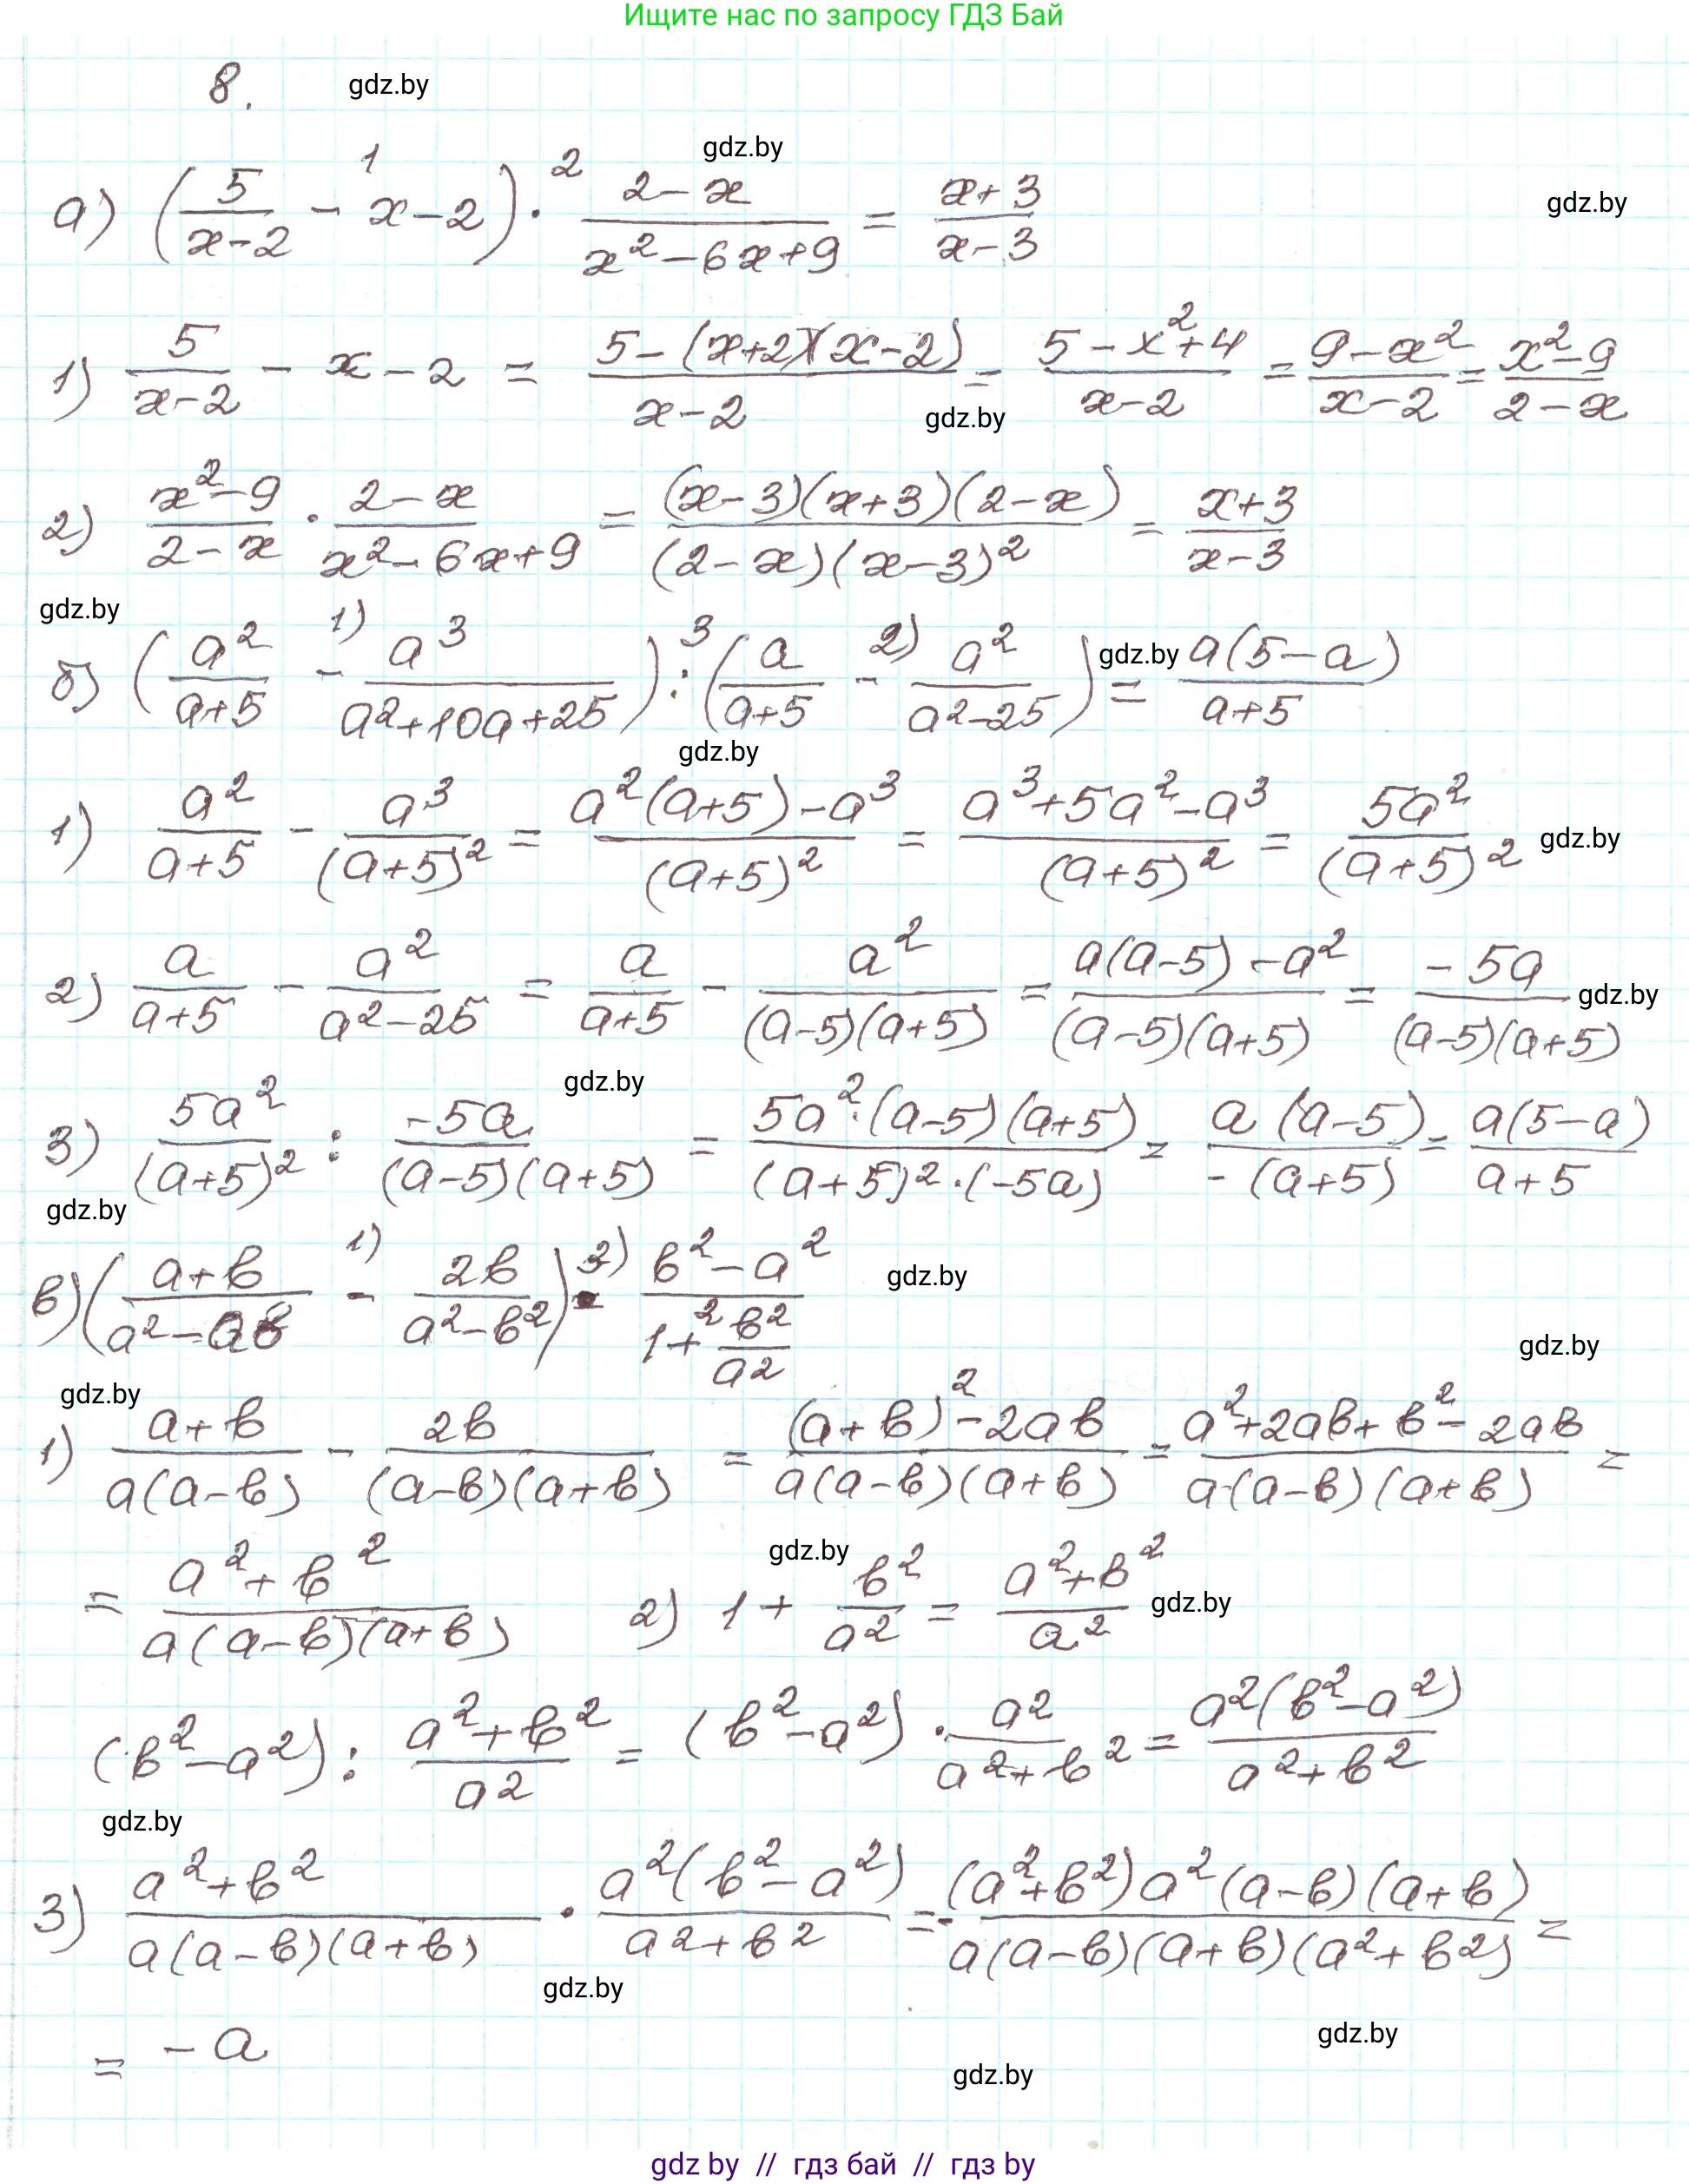 Ищите нас по запросу ГДЗ Бай
8. gdz.by
gdz.by
а) (5/(x-2) -¹ x-2) ·² (2-x)/(x²-6x+9) = (x+3)/(x-3) gdz.by
1) 5/(x-2) - x-2 = (5-(x+2)(x-2))/(x-2) = (5-x²+4)/(x-2) = (9-x²)/(x-2) = (x²-9)/(2-x)
gdz.by
2) (x²-9)/(2-x) · (2-x)/(x²-6x+9) = ((x-3)(x+3)(2-x))/((2-x)(x-3)²) = (x+3)/(x-3)
gdz.by
б) (a²/(a+5) -¹⁾ a³/(a²+10a+25)) :³ (a/(a+5) -²⁾ a²/(a²-25)) = a(5-a)/(a+5) gdz.by
gdz.by
1) a²/(a+5) - a³/(a+5)² = (a²(a+5)-a³)/(a+5)² = (a³+5a²-a³)/(a+5)² = 5a²/(a+5)² gdz.by
2) a/(a+5) - a²/(a²-25) = a/(a+5) - a²/((a-5)(a+5)) = (a(a-5)-a²)/((a-5)(a+5)) = -5a/((a-5)(a+5)) gdz.by
gdz.by
3) 5a²/(a+5)² : -5a/((a-5)(a+5)) = (5a²·(a-5)(a+5))/((a+5)²·(-5a)) = a(a-5)/(-(a+5)) = a(5-a)/(a+5)
gdz.by
в) ((a+в)/(a²-aв) -¹⁾ 2в/(a²-в²)) ·³⁾ (в²-a²)/(1+² в²/a²) gdz.by
gdz.by
gdz.by
1) (a+в)/(a(a-в)) - 2в/((a-в)(a+в)) = ((a+в)²-2aв)/(a(a-в)(a+в)) = (a²+2aв+в²-2aв)/(a(a-в)(a+в)) =
gdz.by
= (a²+в²)/(a(a-в)(a+в)) 2) 1+ в²/a² = (a²+в²)/a² gdz.by
(в²-a²) : (a²+в²)/a² = (в²-a²) · a²/(a²+в²) = a²(в²-a²)/(a²+в²)
gdz.by
3) (a²+в²)/(a(a-в)(a+в)) · a²(в²-a²)/(a²+в²) = - ((a²+в²)a²(a-в)(a+в))/(a(a-в)(a+в)(a²+в²)) =
gdz.by
= -a gdz.by
gdz.by
gdz by // гдз бай // gdz by